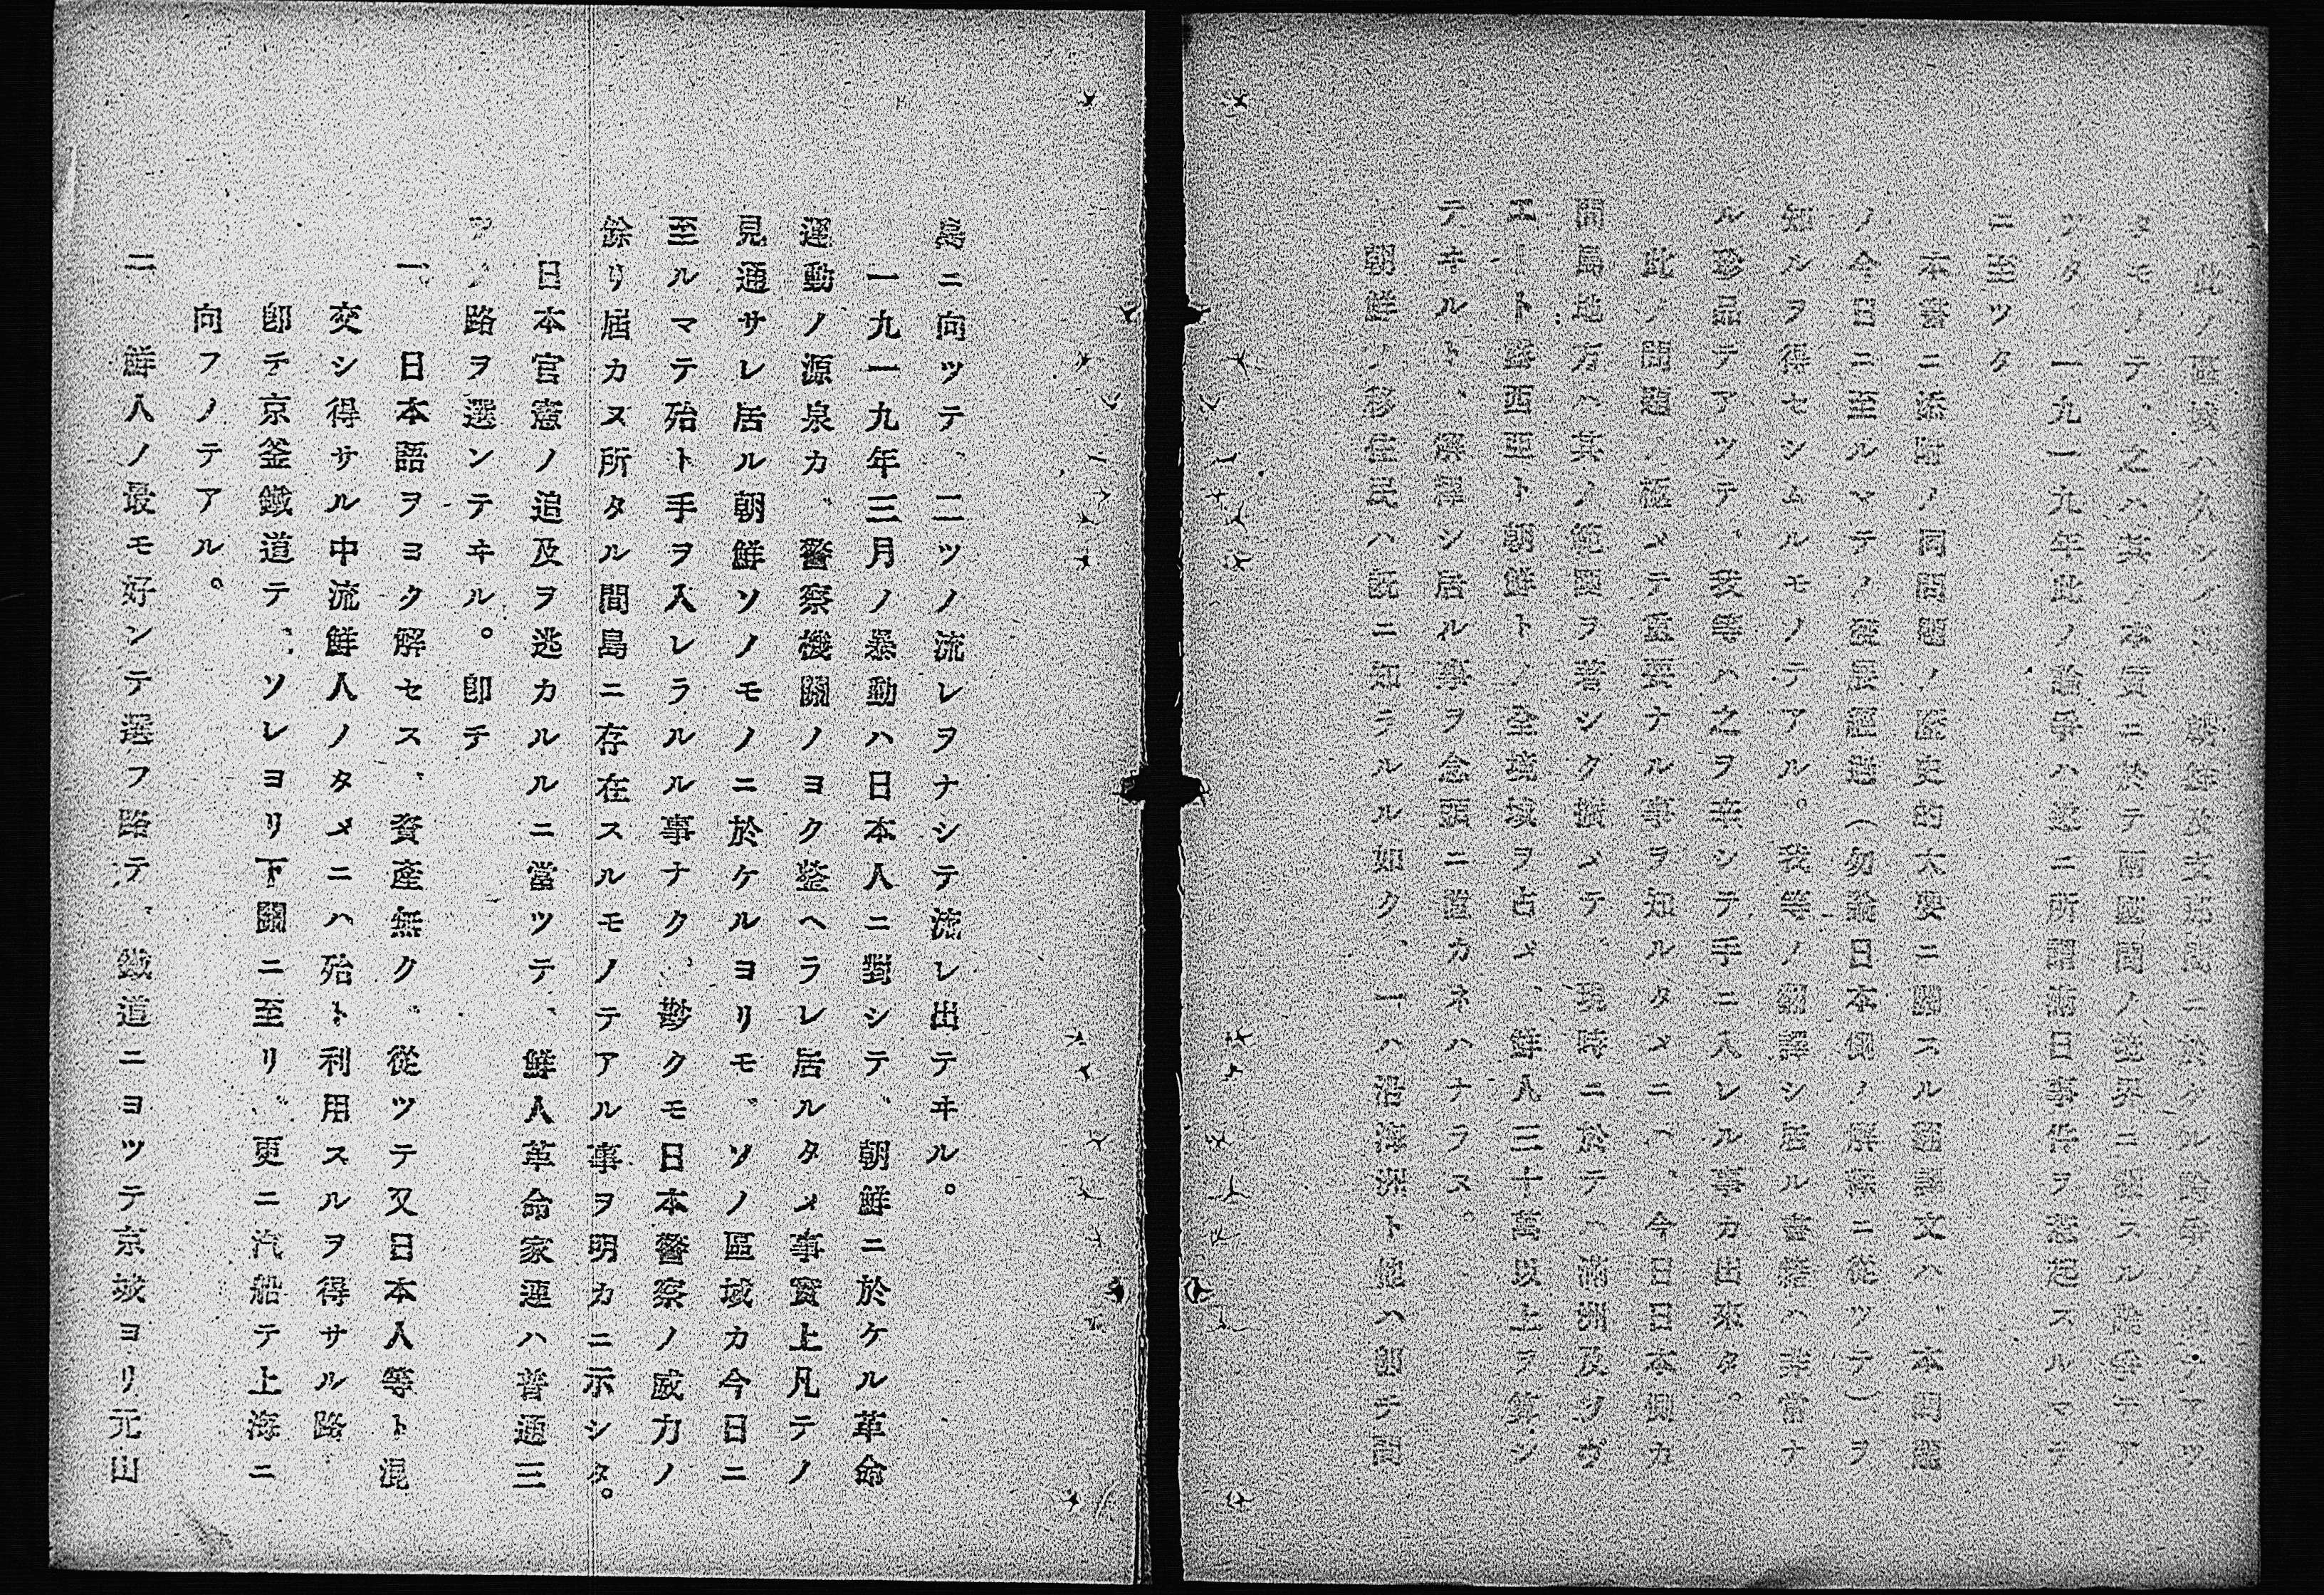 此ノ區域ハ久シイ間朝鮮及支那間ニ於ケル論爭ノ的テアツ
タモノテ、之ハ其ノ本質ニ於テ兩國間ノ境界ニ關スル論爭テア
ツタ、一九一九年此ノ論爭ハ遂ニ所謂滿日事件ヲ惹起スルマテ
ニ至ツタ
本書ニ添附ノ同問題ノ歷史的大要ニ關スル飜譯文ハ、本問題
ノ今日ニ至ルマテノ發展經過（勿論日本側ノ解釋ニ從ツテ）ヲ
知ルヲ得セシムルモノテアル。我等ノ飜譯シ居ル書籍ハ非常ナ
ル珍品テアツテ、我等ハ之ヲ幸シテ手ニ入レル事カ出來タ。
此ノ問題ノ極メテ重要ナル事ヲ知ルタメニハ、今日日本側カ
間島地方ハ其ノ範圍ヲ著シク擴メテ、現時ニ於テハ滿洲及ソヴ
エート露西亞ト朝鮮トノ全境域ヲ占メ、鮮人三十萬以上ヲ算シ
テヰルト、解釋シ居ル事ヲ念頭ニ置カネハナラス。
朝鮮ノ移住民ハ既ニ知ラルル如ク、一ハ沿海洲ト他ハ卽チ間
島ニ向ツテ、二ツノ流レヲナシテ流レ出テヰル。
一九一九年三月ノ暴動ハ日本人ニ對シテ、朝鮮ニ於ケル革命
運動ノ源泉カ、警察機關ノヨク整ヘラレ居ルタメ事實上凡テノ
見通サレ居ル朝鮮ソノモノニ於ケルヨリモ、ソノ區域カ今日ニ
至ルマテ殆ト手ヲ入レラルル事ナク、尠クモ日本警察ノ威力ノ
餘リ屆カヌ所タル間島ニ存在スルモノテアル事ヲ明カニ示シタ。
日本官憲ノ追及ヲ逃カルルニ當ツテ、鮮人革命家連ハ普通三
アノ路ヲ選ンテヰル。卽チ
一、日本語ヲヨク解セス、資產無ク、從ツテ又日本人等ト混
交シ得サル中流鮮人ノタメニハ殆ト利用スルヲ得サル路、
卽チ京釜鐵道テ、ソレヨリ下關ニ至リ、更ニ汽船テ上海ニ
向フノテアル。
二 鮮人ノ最モ好ンテ選フ路テ、鐵道ニヨツテ京城ヨリ元山